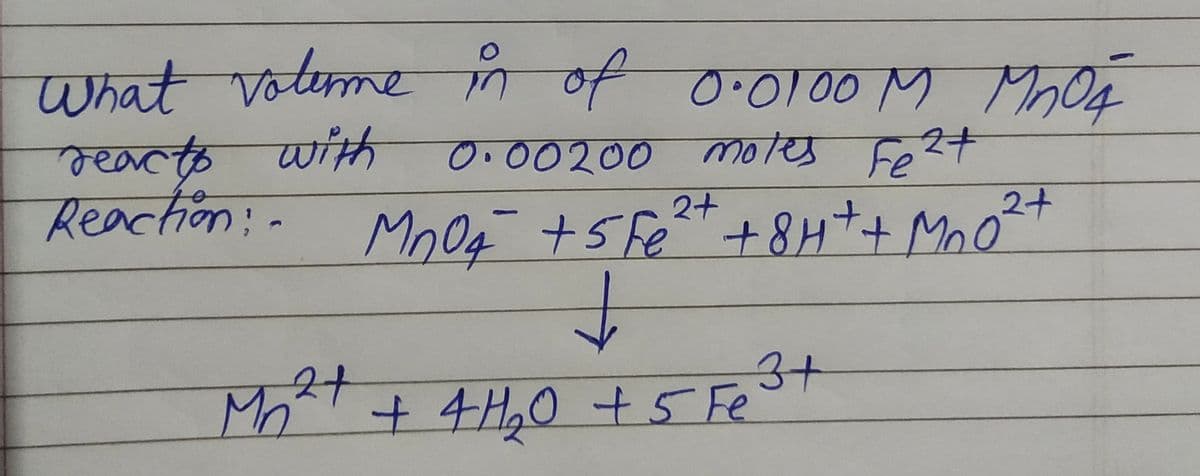 What volume in of 0.0100 M MnO4⁻
reacts with 0.00200 moles Fe²⁺
Reaction:- MnO4⁻ + 5Fe²⁺ + 8H⁺ + MnO²⁺
↓
Mn²⁺ + 4H₂O + 5Fe³⁺